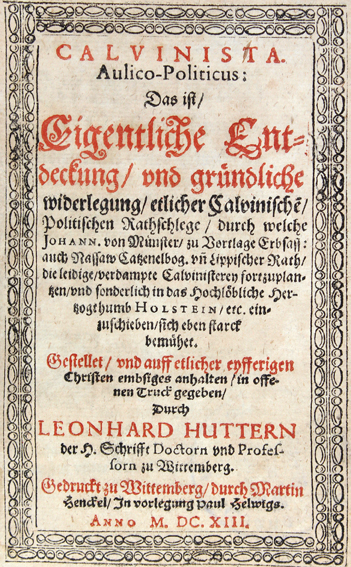 CALVINISTA.
Aulico-Politicus:
Das ist/
Eigentliche Ent-
deckung/ vnd gründliche
widerlegung/ etlicher Calvinischē/
Politischen Rathschlege/ durch welche
JOHANN. von Münster/ zu Vortlage Erbsaß:
auch Nassaw Catzenelbog. vñ Lippischer Rath/
die leidige/ verdampte Calvinisterey fortzuplan-
tzen/ vnd sonderlich in das Hochlöbliche Her-
tzogthumb HOLSTEIN/ etc. ein-
zuschieben/ sich eben starck
bemühet.
Gestellet/ vnd auff etlicher eyfferigen
Christen embsiges anhalten/ in offe-
nen Truck gegeben/
Durch
LEONHARD HUTTERN
der H. Schrifft Doctorn vnd Profes-
sorn zu Wittemberg.
Gedruckt zu Wittemberg/ durch Martin
Henckel/ In vorlegung Paul Helwigs.
ANNO M. DC. XIII.